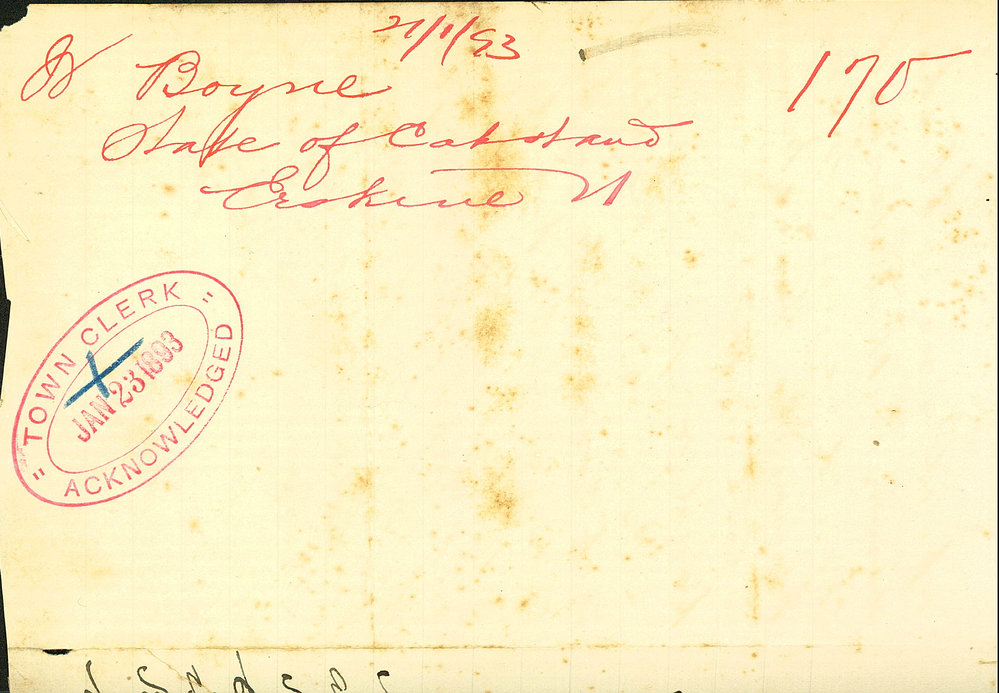 21/1/93
W Boyne
170
State of Cabstand
Erskine St
" TOWN CLERK "
JAN 23 1893
ACKNOWLEDGED